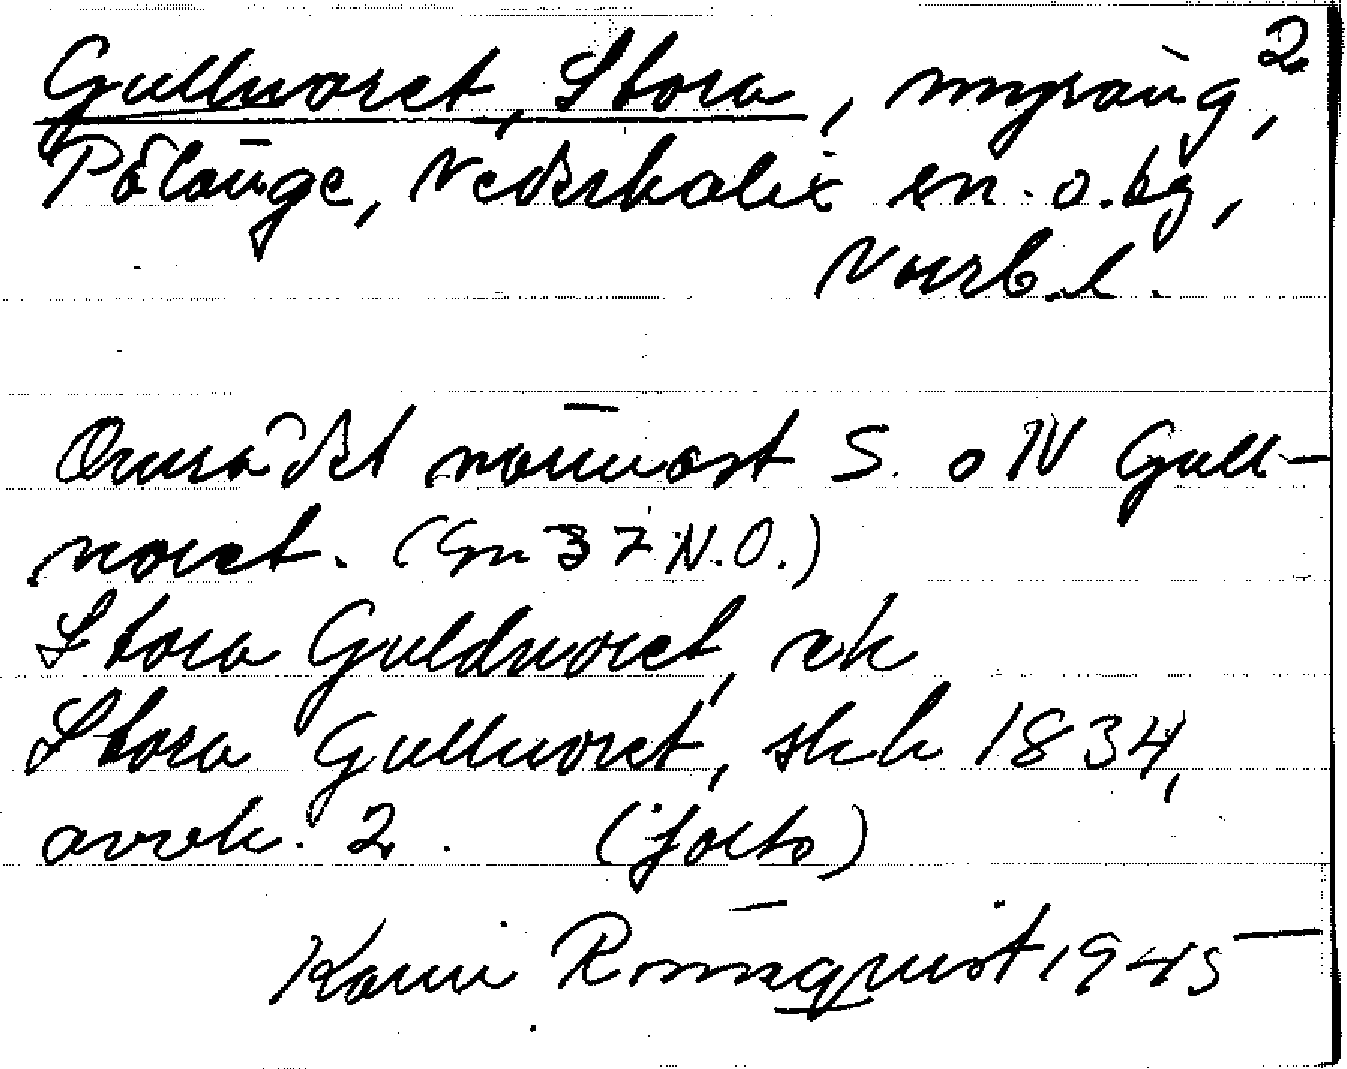 Gullnäset, Stora, myräng, 2
Pålänge, Nederkalix sn. o. bg,
Norrb. l.
Området närmast S. o N Gull-
näset. (Gn 37 N.O.)
Stora Guldnäset, ek
Stora Gullnäset, skh 1834,
avvek. 2. (foto)
Karin Rönnquist 1945